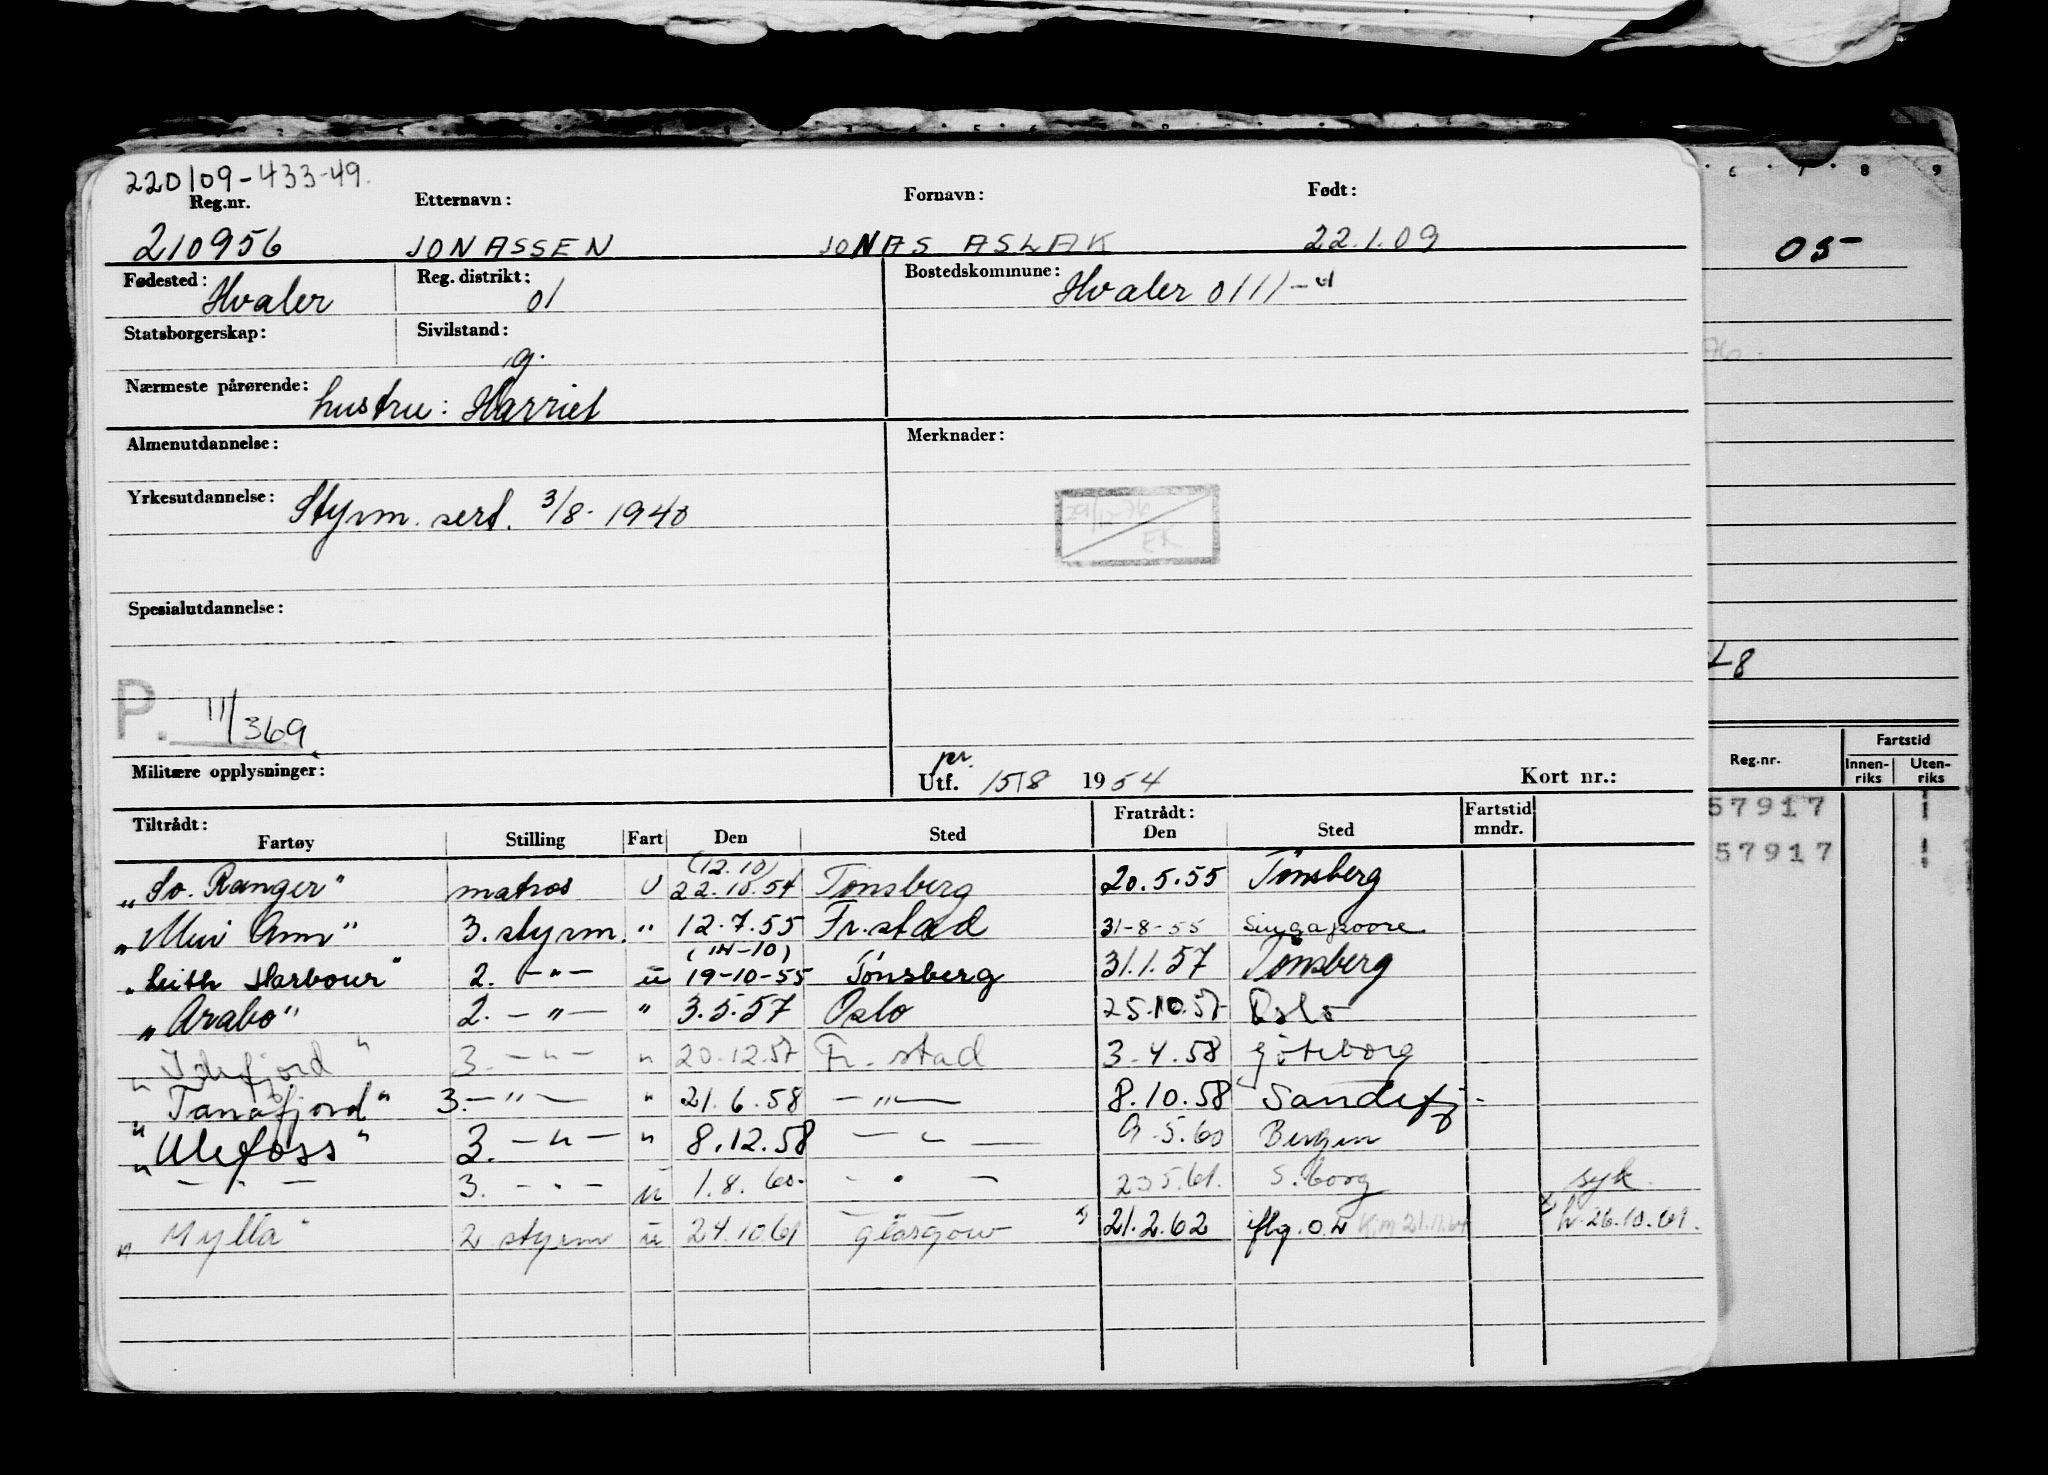 220109-433-49.
Reg.nr. Etternavn: Fornavn: Født:
210956 JONASSEN JONAS ASLAK 22.1.09
Fødested: Hvaler Reg. distrikt: 01 Bostedskommune: Hvaler 0111-
Statsborgerskap: Sivilstand: g.
Nærmeste pårørende: hustru: Harriet
Almenutdannelse: Merknader:
Yrkesutdannelse: Styrm. sert. 3/8-1940
EK
Spesialutdannelse:
P. 11/369
Militære opplysninger: pr. Utf. 15/8 1954 Kort nr.:
Tiltrådt: Fratrådt: Fartstid mndr.
Fartøy Stilling Fart Den Sted Den Sted
(12.10)
"So. Ranger" matros U 22.10.54 Tønsberg 20.5.55 Tønsberg
"Mui Ann" 3. styrm. " 12.7.55 Fr.stad 31-8-55 Singapoore
(14-10)
"Leith Harbour" 2. -"- u 19-10-55 Tønsberg 31.1.57 Tønsberg
"Arabo" 2. -"- " 3.5.57 Oslo 25.10.57 Oslo
"Idefjord" 3. -"- " 20-12.57 Fr.stad 3.4.58 Göteborg
"Tanafjord" 3. -"- " 21.6.58 -"- 8.10.58 Sandefj.
"Ulefoss" 3. -"- " 8.12.58 -"- 9.5.60 Bergen
-"- 3. -"- u 1.8.60. -"- 23.5.61. S.borg syk.
"Mylla" 2. styrm u 24.10.61 Glasgow x) 21.2.62 iflg. O.L KM 21.11.61 x) h. 26.10.61.
05
L8
Reg.nr. Fartstid
Innen-riks Uten-riks
57917 1
57917 1